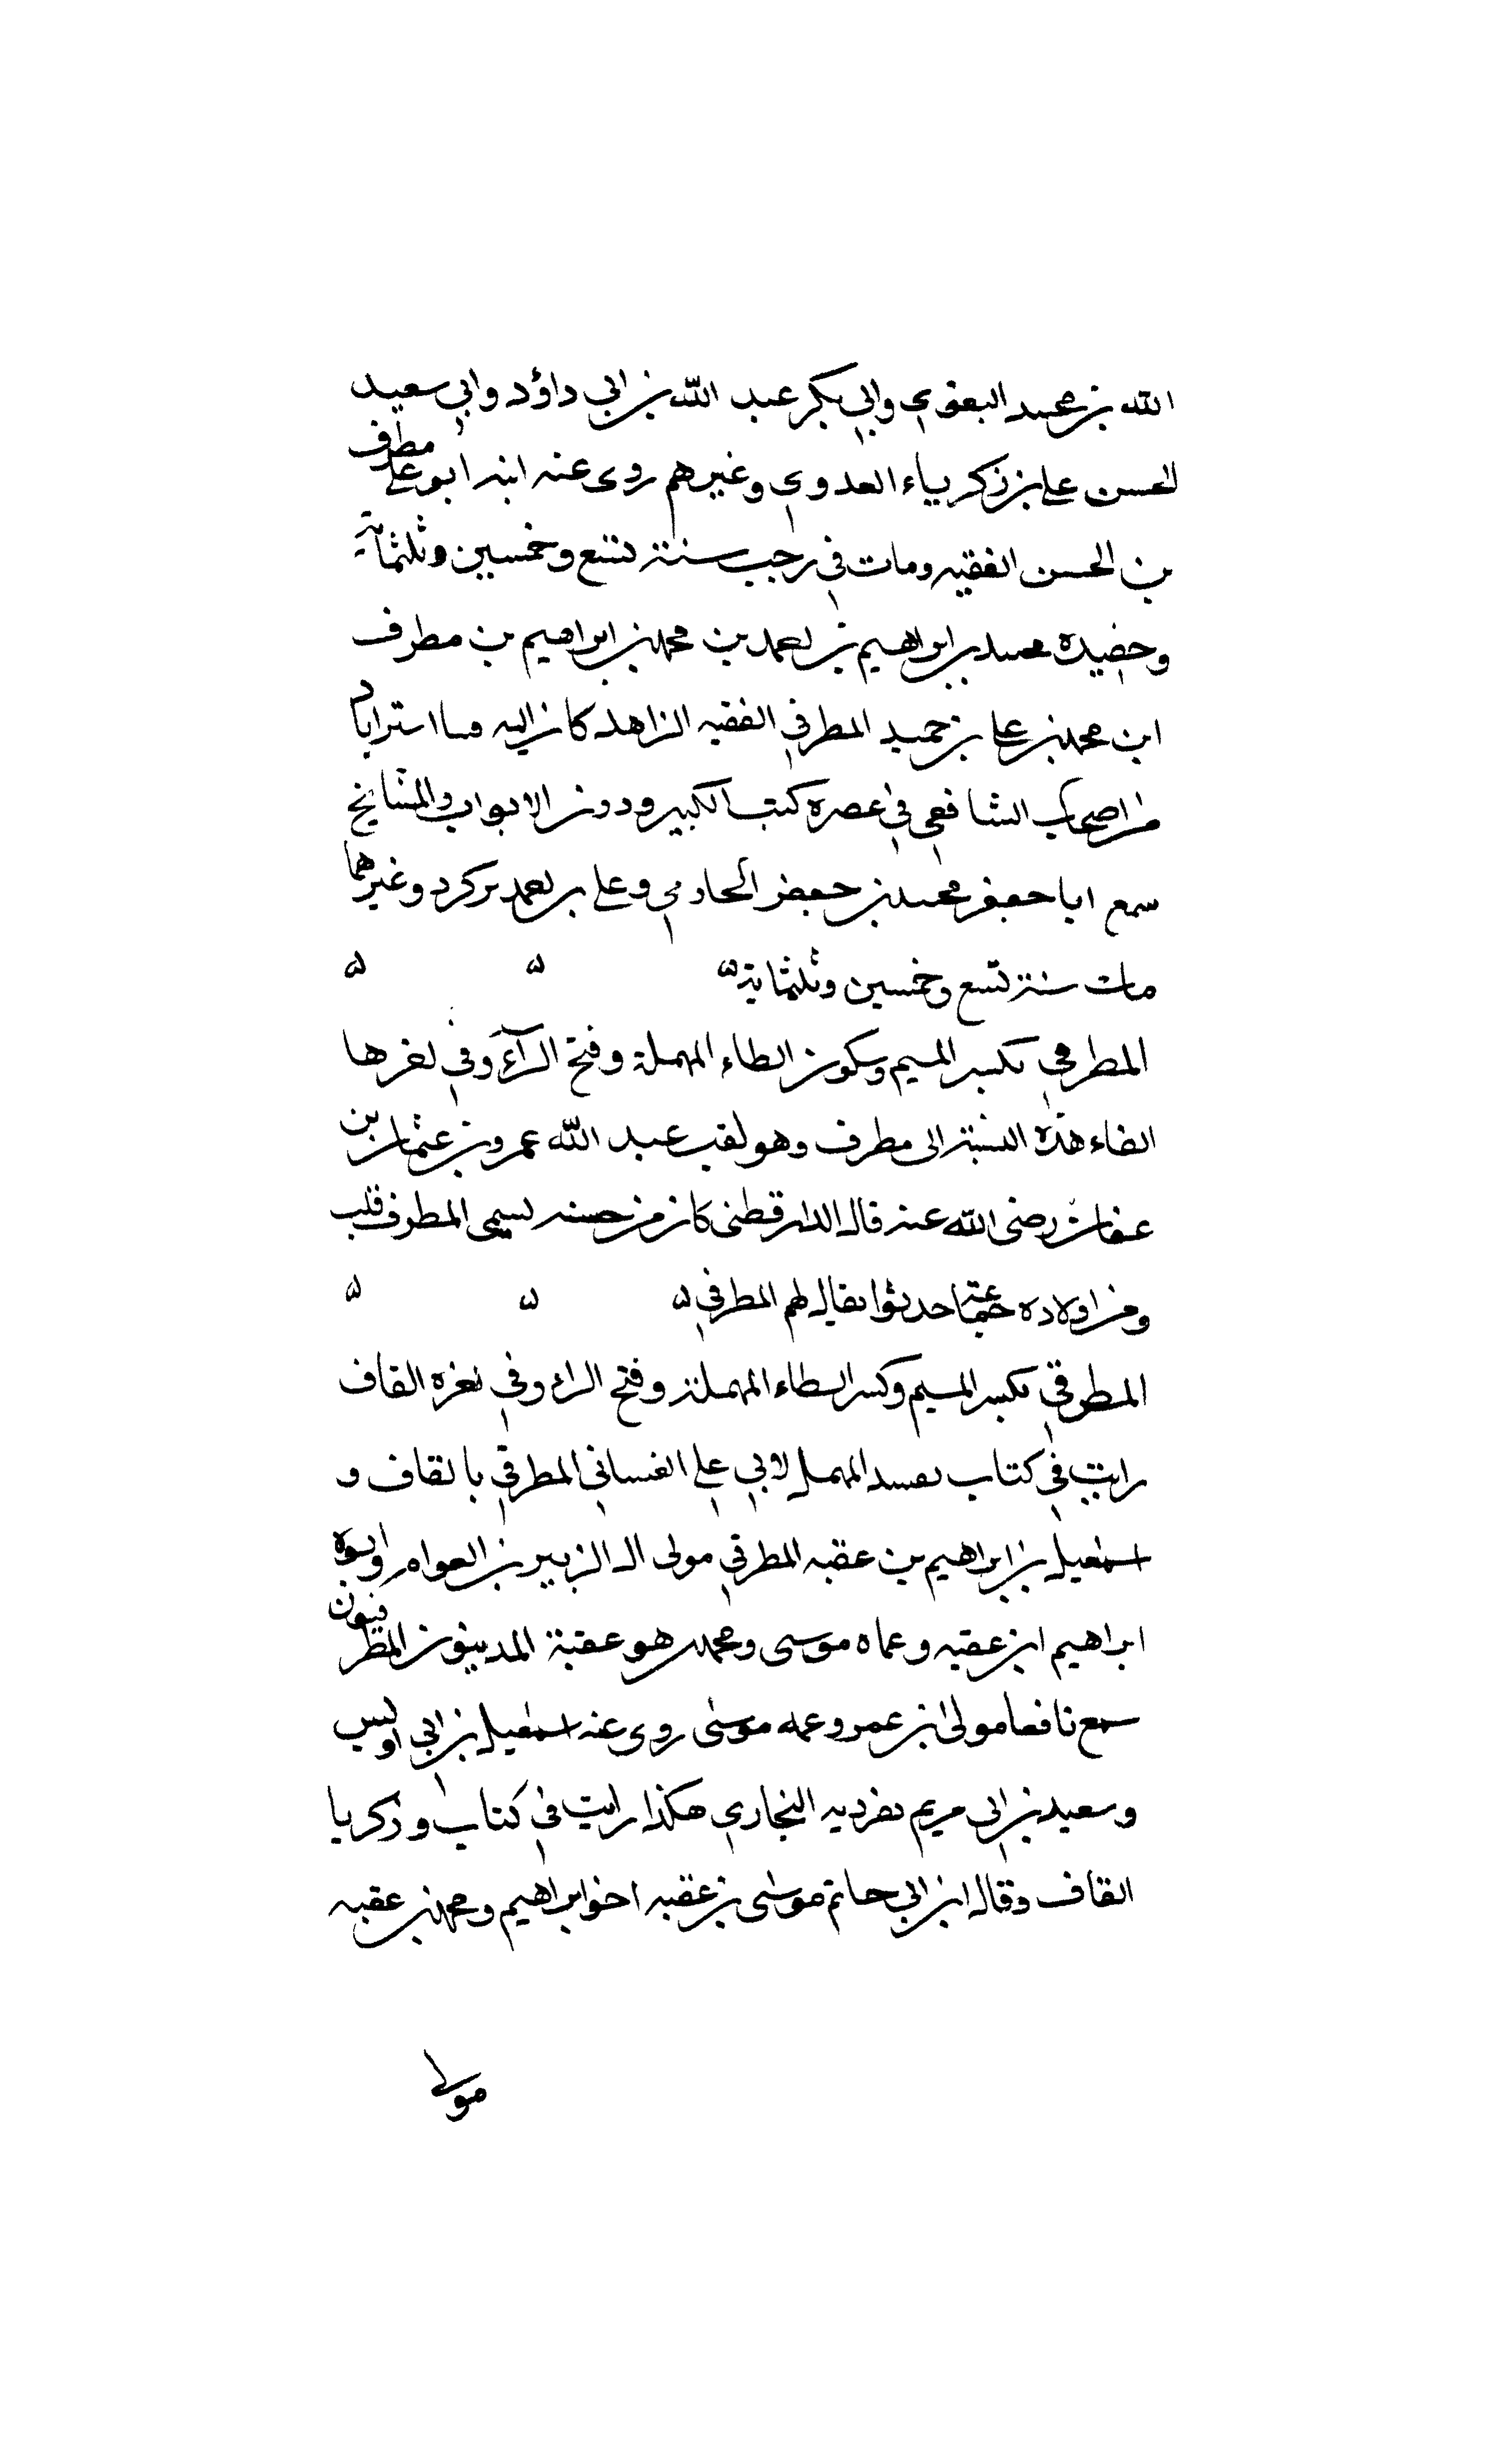 الله بن محمد البغوي وابي بكر عبد الله بن ابي داؤد وابي سعيد
الحسن علي بن زكرياء العدوي وغيرهم روى عنه ابنه ابو علي مطرف
بن الحسن الفقيه ومات في رجب سنة تسع وخمسين وثلثماية
وحفيده محمد بن ابراهيم بن احمد بن محمد بن ابراهيم بن مطرف
ابن محمد بن علي بن حميد المطرفي الفقيه الزاهد كان اليه استراباد
من اصحاب الشافعي في عصره كتب الكبير ودون الابواب والمشايخ
سمع ابا جعفر محمد بن جعفر الحازمي وعلي بن احمد بن كرد وغيرهما
مات سنة تسع وخمسين وثلثماية ه ه ه
المطرفي بكسر الميم وسكون الطاء المهملة وفتح الرآء وفي اخرها
الفاء هذه النسبة الى مطرف وهو لقب عبد الله عمرو بن عثمان بن
عفان رضى الله عنه قال الدارقطنى كان من حسنه يسمى المطرف قلب
ومن اولاده جماعة حدثوا يقال لهم المطرفي ه ه ه
المطرقي بكسر الميم وكسر الطاء المهملة وفتح الراء وفي اخره القاف
رايت في كتاب تقييد المهمل لابي علي الغساني المطرقي بالقاف و
اسمعيل بن ابراهيم بن عقبه المطرقي مولى ال الزبير بن العوام وابوه
ابراهيم ابن عقبه وعماه موسى ومحمد هو عقبة المدينون المطرقيون
سمع نافعا مولى ابن عمر وعمه موسى روى عنه اسمعيل بن ابي اويس
وسعيد بن ابي مريم تفرد به البخاري هكذا رايت في كتاب وذكر يا
القاف وقال ابن ابي حاتم موسى بن عقبه اخو ابراهيم ومحمد بن عقبه
مولى